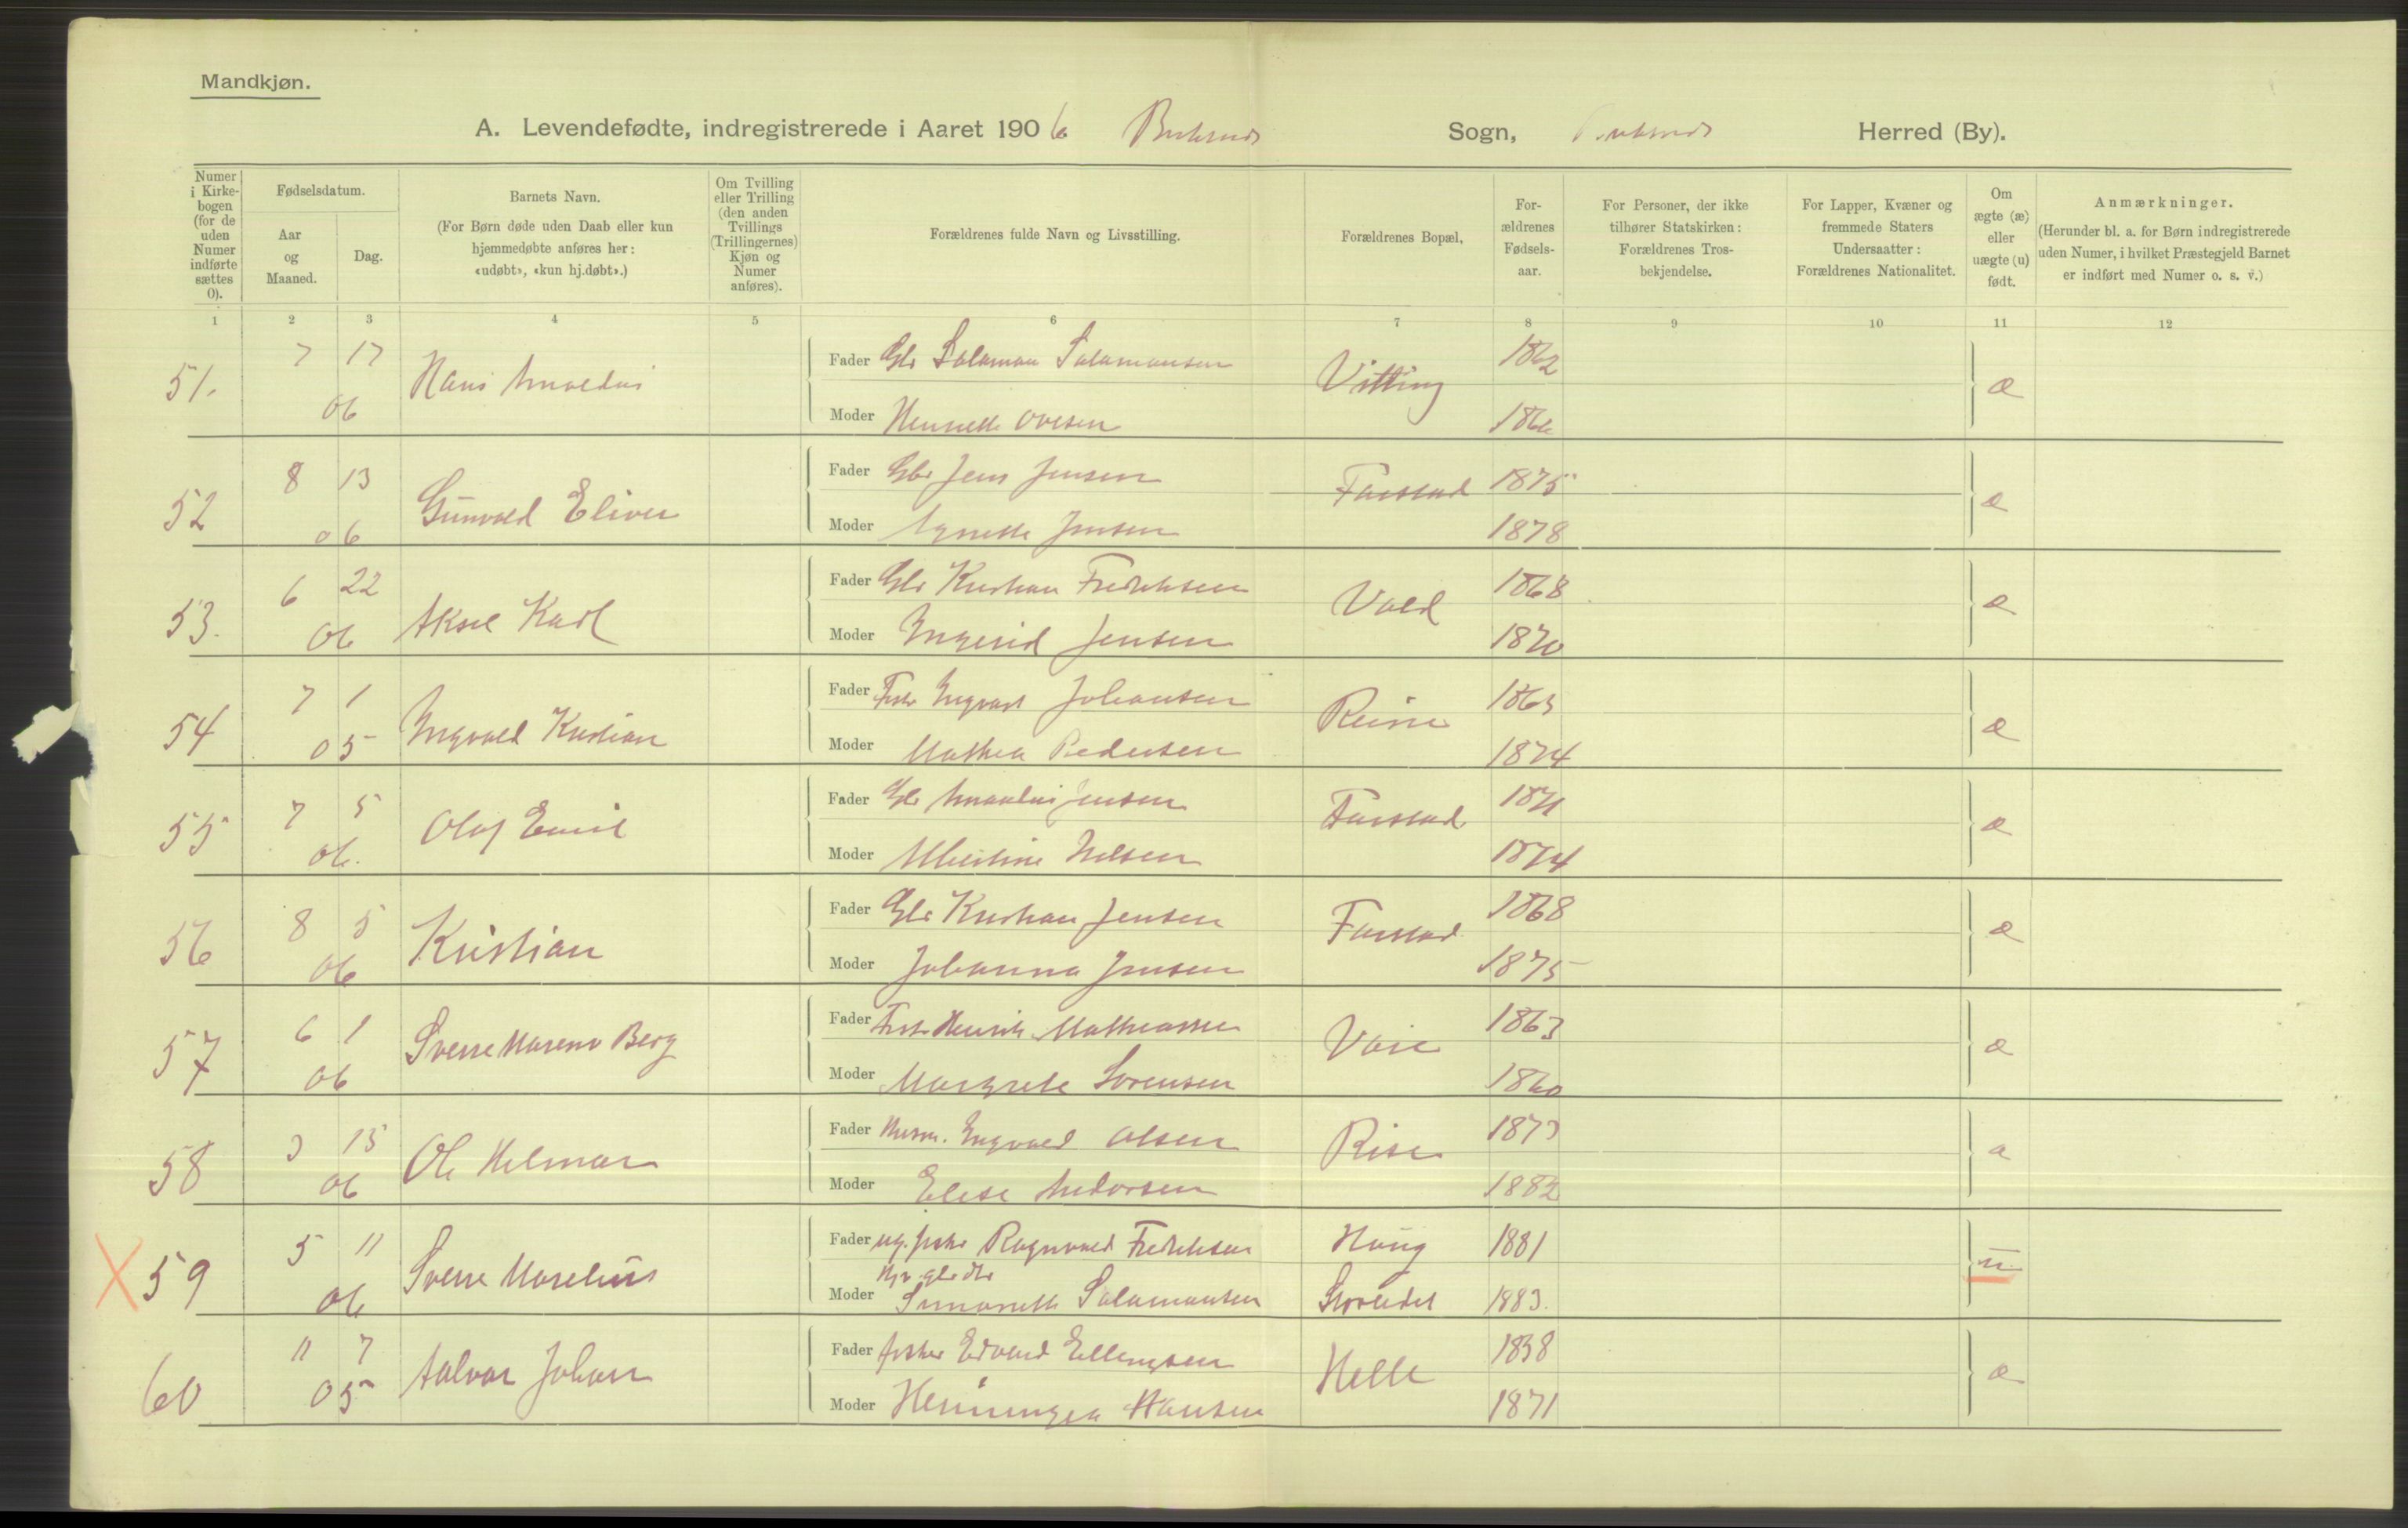 Mandkjøn.
A. Levendefødte, indregistrerede i Aaret 1906 Buksnes Sogn, Buksnes Herred (By).
Numer i Kirkebogen (for de uden Numer indførte sættes 0).
Fødselsdatum.
Aar og Maaned.
Dag.
Barnets Navn.
(For Børn døde uden Daab eller kun hjemmedøbte anføres her: «udøbt», «kun hj.døbt».)
Om Tvilling eller Trilling (den anden Tvillings (Trillingernes) Kjøn og Numer anføres).
Forældrenes fulde Navn og Livsstilling.
Forældrenes Bopæl,
Forældrenes Fødselsaar.
For Personer, der ikke tilhører Statskirken: Forældrenes Trosbekjendelse.
For Lapper, Kvæner og fremmede Staters Undersaatter: Forældrenes Nationalitet.
Om ægte (æ) eller uægte (u) født.
Anmærkninger.
(Herunder bl. a. for Børn indregistrerede uden Numer, i hvilket Præstegjeld Barnet er indført med Numer o. s. v.)
1 2 3 4 5 6 7 8 9 10 11 12
51. 7 17 06 Hans Arnoldus Fader Gbr Salamon Salamonsen Vitting 1862 æ
Moder Ovesen
52 8 13 06 Gunvald Fader Gbr Jens Jensen Farstad 1875 æ
Moder Agnette Jensen 1878
53. 6 22 06 Aksel Karl Fader Gbr Kristian Fredriksen Vold 1868 æ
Moder Ingerid Jensen 1870
54 7 1 05 Ingvald Kristian Fader Fisker Ingvart Johansen 1863 æ
Moder Mathea Pedersen 1874
55 7 5 06. Olaf Emil Fader Gbr Jensen Farstad 1871 æ
Moder Nilsen 1874
56 8 5 06 Kristian Fader Gbr Kristian Jensen Farstad 1868 æ
Moder Johanna Jensen 1875
57 6 1 06 Sverre Berg Fader Fisker Henrik Mathiassen 1863 æ
Moder Margrete Sørensen 1860
58 3 15 06 Ole Helmar Fader Husm. Ingvald Olsen Rise 1873 æ
Moder Elise Andorsen 1882
X 59 5 11 06 Sverre Fader ug. fisker Ragnvald Fredriksen Haug 1881 u
Moder Simonette Salamonsen 1883.
60 11 7 05 Johan Fader fisker Edvard Ellingsen Helle æ
Moder Henningea Hansen 1871